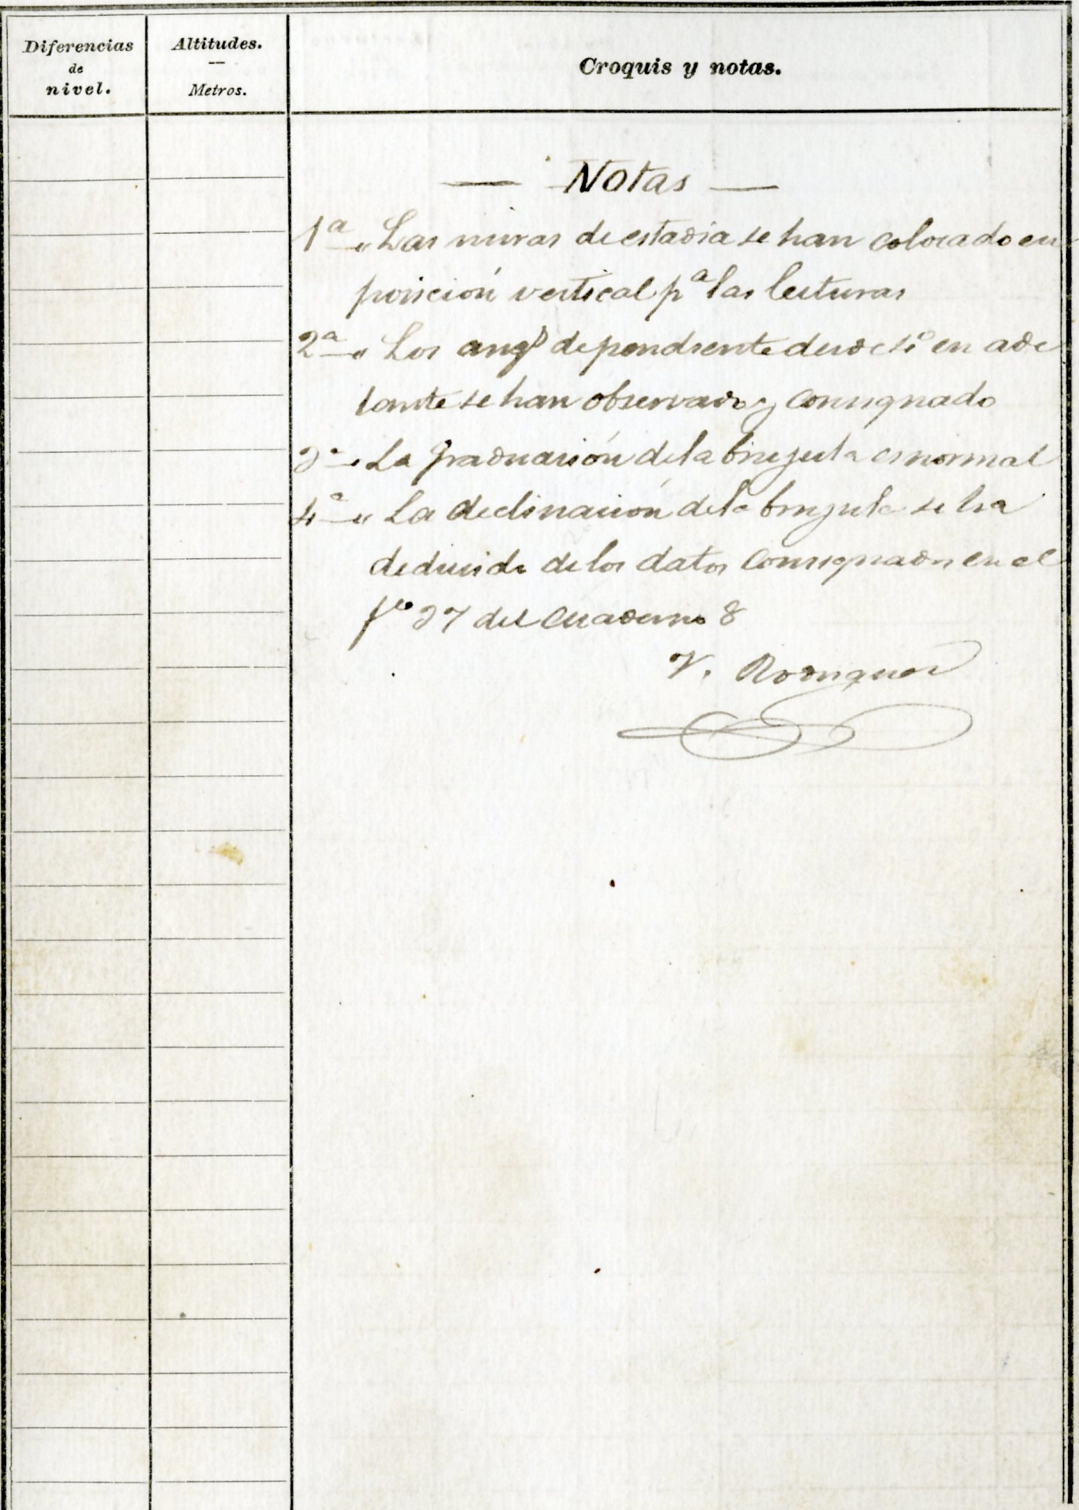 Diferencias
de
nivel.
Altitudes.
Metros.
Croquis y notas.
— Notas —
1ª Las miras de estadia se han colocado en
posición vertical pª las lecturas
2ª Los angs de pendiente desde 5º en ade
lante se han observado y consignado
3ª La graduación de la brujula es normal
4ª La declinación de la brujula se ha
deducido de los datos consignados en el
fº 27 del cuaderno 8
V. Rodriguez